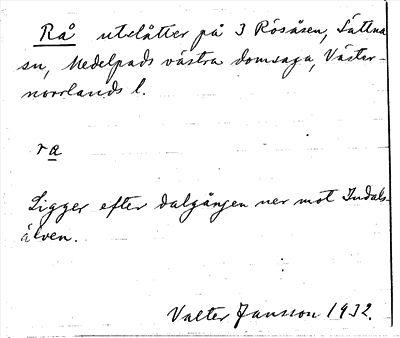 Rå utslåtter på 3 Rösåsen, Sättna
sn, Medelpads västra domsaga, Väster-
norrlands l.
ra
Ligger efter dalgången ner mot Indals-
älven.
Valter Jansson 1932.